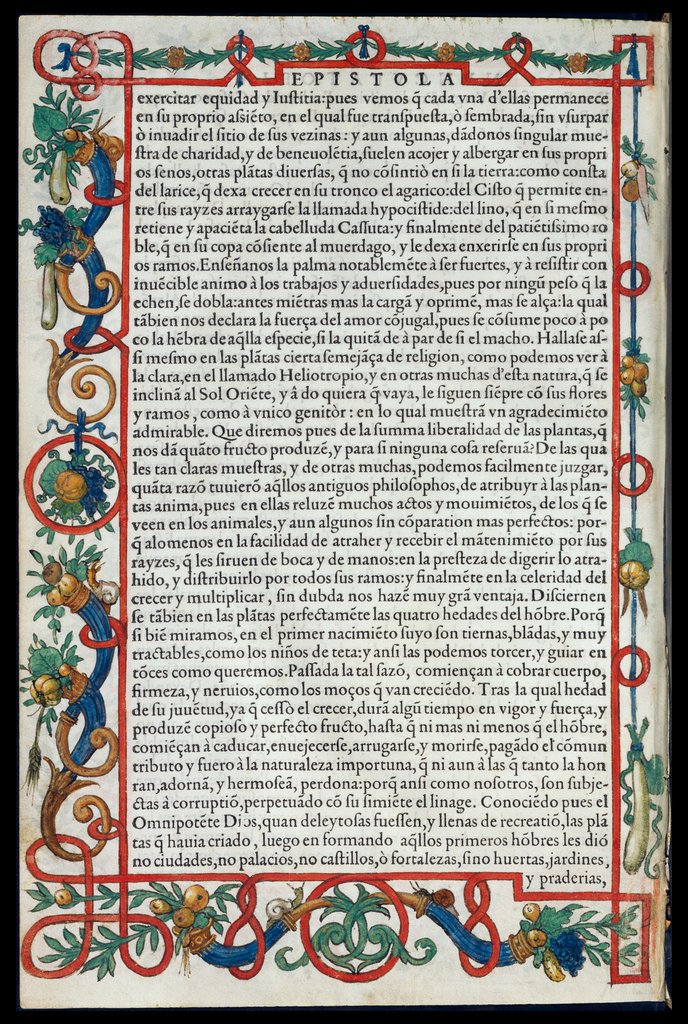 EPISTOLA
exercitar equidad y Iuſtitia:pues vemos q̃ cada vna d'ellas permanece
en ſu proprio aſsiẽto, en el qual fue tranſpueſta,ò ſembrada,ſin vſurpar
ò inuadir el ſitio de ſus vezinas : y aun algunas,dãdonos ſingular mue-
ſtra de charidad,y de beneuolẽtia,ſuelen acojer y albergar en ſus propri
os ſenos,otras plãtas diuerſas, q̃ no cõſintiò en ſi la tierra:como conſta
del larice,q̃ dexa crecer en ſu tronco el agarico:del Ciſto q̃ permite en-
tre ſus rayzes arraygarſe la llamada hypociſtide:del lino, q̃ en ſi meſmo
retiene y apaciẽta la cabelluda Caſſuta:y finalmente del patiẽtiſsimo ro
ble,q̃ en ſu copa cõſiente al muerdago, y le dexa enxerirſe en ſus propri
os ramos.Enſeñanos la palma notablemẽte à ſer fuertes, y à reſiſtir con
inuẽcible animo à los trabajos y aduerſidades,pues por ningũ peſo q̃ la
echen,ſe dobla:antes miẽtras mas la cargã y oprimẽ, mas ſe alça:la qual
tãbien nos declara la fuerça del amor cõjugal,pues ſe cõſume poco à po
co la hẽbra de aq̃lla eſpecie,ſi la quitã de à par de ſi el macho. Hallaſe aſ-
ſi meſmo en las plãtas cierta ſemejãça de religion, como podemos ver à
la clara,en el llamado Heliotropio,y en otras muchas d'eſta natura,q̃ ſe
inclinã al Sol Oriẽte, y â do quiera q̃ vaya, le ſiguen ſiẽpre cõ ſus flores
y ramos , como à vnico genitòr : en lo qual mueſtrã vn agradecimiẽto
admirable. Que diremos pues de la ſumma liberalidad de las plantas,q̃
nos dã quãto fructo produzẽ,y para ſi ninguna coſa reſeruã? De las qua
les tan claras mueſtras, y de otras muchas, podemos facilmente juzgar,
quãta razõ tuuierõ aq̃llos antiguos philoſophos,de atribuyr à las plan-
tas anima,pues en ellas reluzẽ muchos actos y mouimiẽtos, de los q̃ ſe
veen en los animales,y aun algunos ſin cõparation mas perfectos: por-
q̃ alomenos en la facilidad de atraher y recebir el mãtenimiẽto por ſus
rayzes, q̃ les ſiruen de boca y de manos:en la preſteza de digerir lo atra-
hido, y diſtribuirlo por todos ſus ramos:y finalmẽte en la celeridad del
crecer y multiplicar, ſin dubda nos hazẽ muy grã ventaja. Diſciernen
ſe tãbien en las plãtas perfectamẽte las quatro hedades del hõbre.Porq̃
ſi biẽ miramos, en el primer nacimiẽto ſuyo ſon tiernas,blãdas,y muy
tractables,como los niños de teta:y anſi las podemos torcer,y guiar en
tõces como queremos.Paſſada la tal ſazõ, comiençan à cobrar cuerpo,
firmeza,y neruios,como los moços q̃ van creciẽdo. Tras la qual hedad
de ſu juuẽtud,ya q̃ ceſſò el crecer,durã algũ tiempo en vigor y fuerça,y
produzẽ copioſo y perfecto fructo,haſta q̃ ni mas ni menos q̃ el hõbre,
comiẽçan à caducar,enuejecerſe,arrugarſe,y morirſe,pagãdo el cõmun
tributo y fuero à la naturaleza importuna, q̃ ni aun à las q̃ tanto la hon
ran,adornã, y hermoſeã, perdona:porq̃ anſi como noſotros, ſon ſubje-
ctas à corruptiõ,perpetuãdo cõ ſu ſimiẽte el linage. Conociẽdo pues el
Omnipotẽte Dios,quan deleytoſas fueſſen,y llenas de recreatiõ,las plã
tas q̃ hauia criado , luego en formando aq̃llos primeros hõbres les diò
no ciudades,no palacios,no caſtillos,ò fortalezas,ſino huertas,jardines,
y praderias,